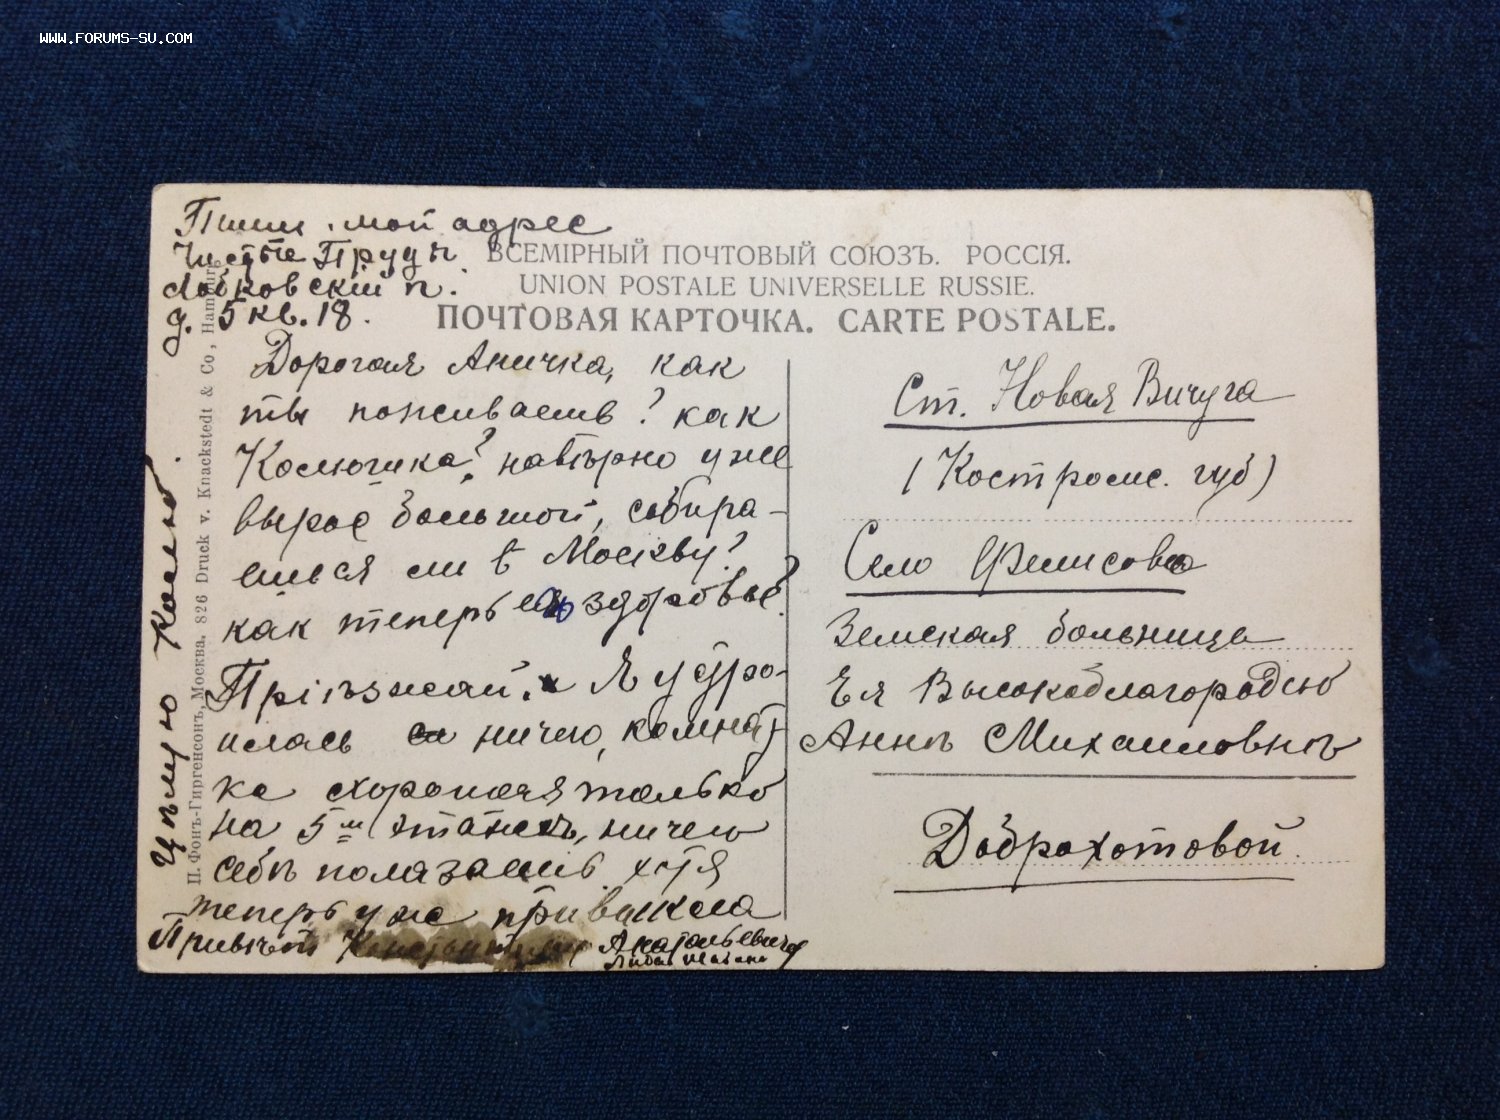 WWW.FORUMS-SU.COM
Пиши мой адрес
Чистые Пруды
Лобковскій п.
д. 5 кв. 18.
ВСЕМІРНЫЙ ПОЧТОВЫЙ СОЮЗЪ. РОССІЯ.
UNION POSTALE UNIVERSELLE RUSSIE.
ПОЧТОВАЯ КАРТОЧКА. CARTE POSTALE.
Дорогая Аничка, как
ты поживаешь? как
навѣрно уже
вырос большой, собира-
ешься ли в Москву?
как теперь здоровье?
Пріѣзжай. Я устро-
илась ничего, комнат-
ка хорошая только
на 5м этажѣ, ничего
себѣ полазаешь хотя
теперь уже привыкла
Привѣт Константину Анатольевичу
Цѣлую Колю.
П. Фонъ-Гиргенсонъ, Москва. 826 Druck v. Knackstedt & Co., Hamburg
Ст. Новая Вичуга
(Костромс. губ)
Село Филисово
Земская больница
Ея Высокоблагородію
Аннѣ Михайловнѣ
Доброхотовой.